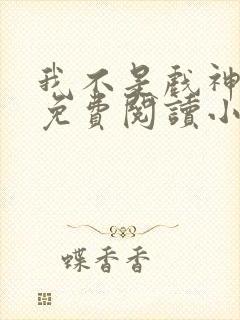 我不是戲神
免費閱讀小
蝶香香